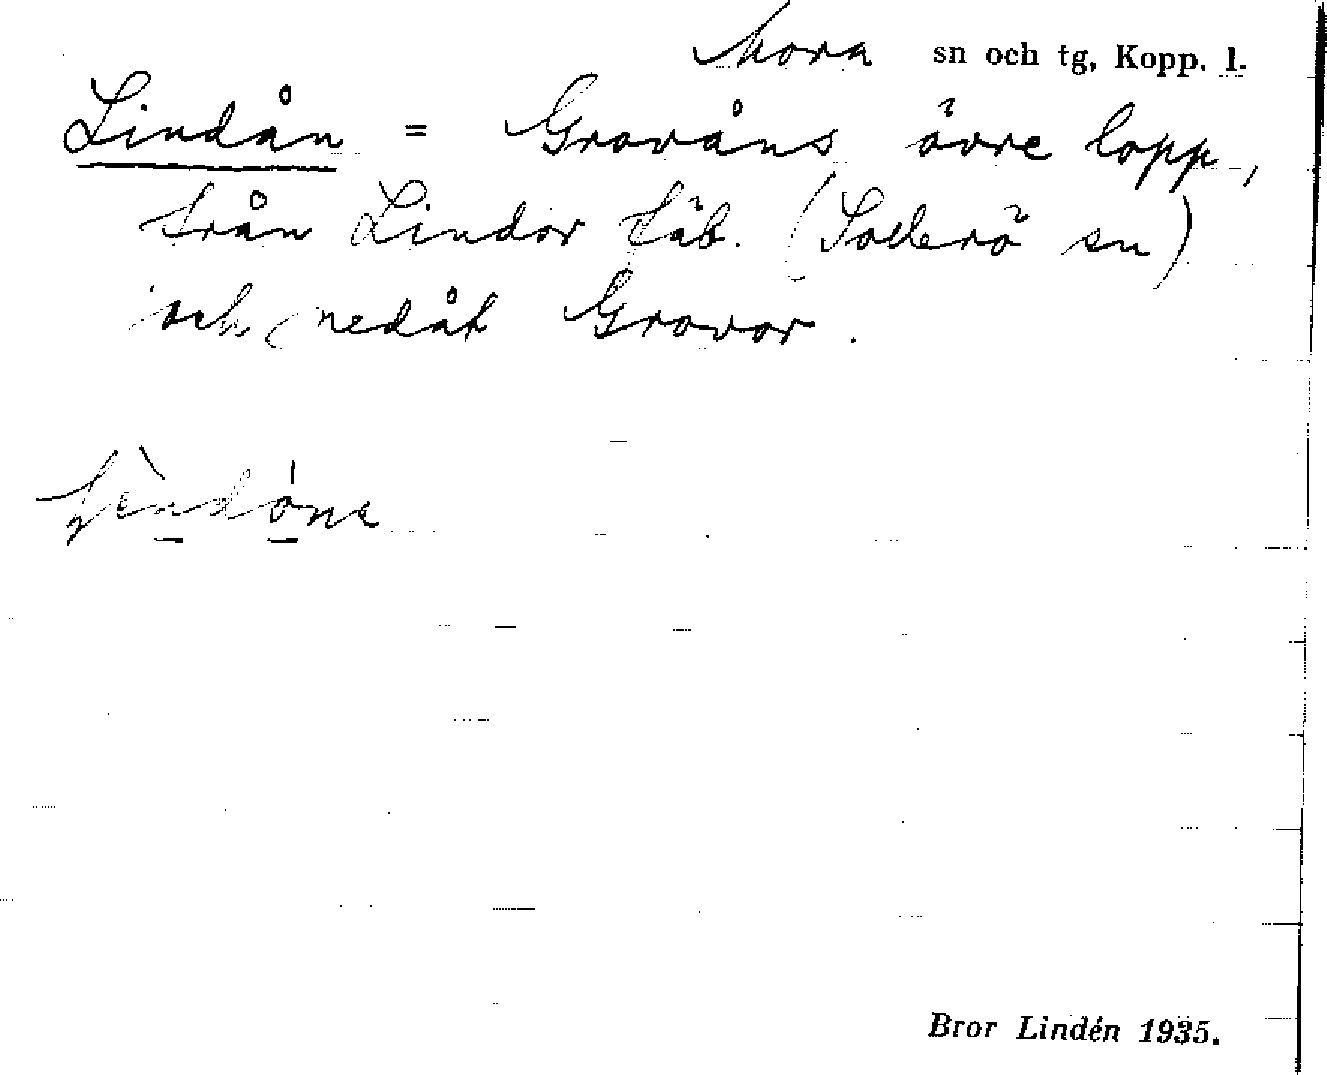 Mora sn och tg, Kopp. l.
Lindån = Grovåns övre lopp,
från Lindor fäb. (Sollerö sn)
och nedåt Grovor.
Bror Lindén 1935.